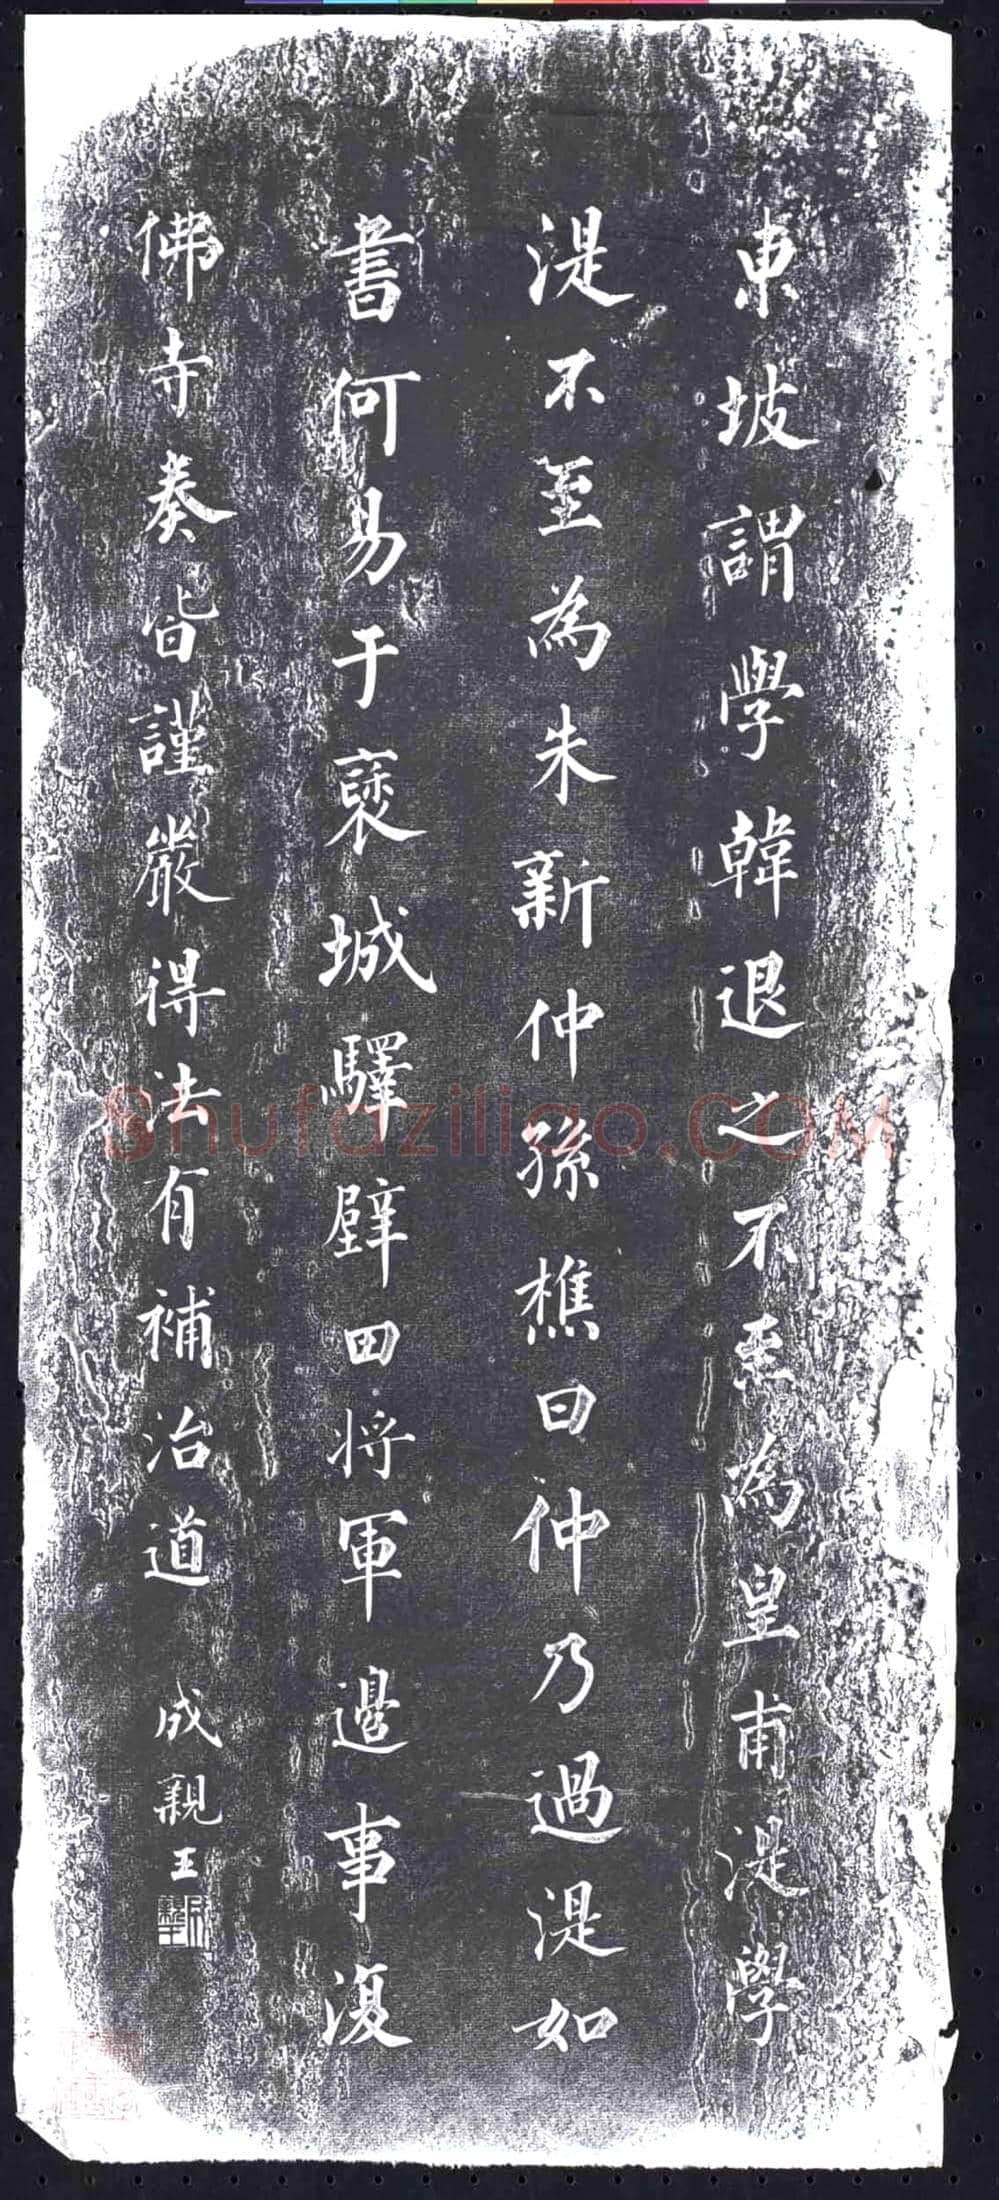 東坡謂學韓退之不至為皇甫湜學
湜不至為朱新仲孫樵曰仲乃過湜如
書何易于褒城驛壁田將軍邊事復
佛寺奏皆謹嚴得法有補治道
成親王
Shufaziliao.COM